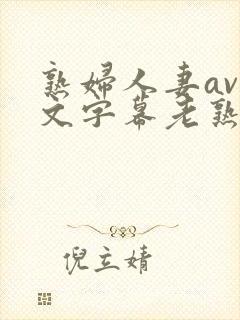 熟婦人妻av
文字幕老熟
倪立婧